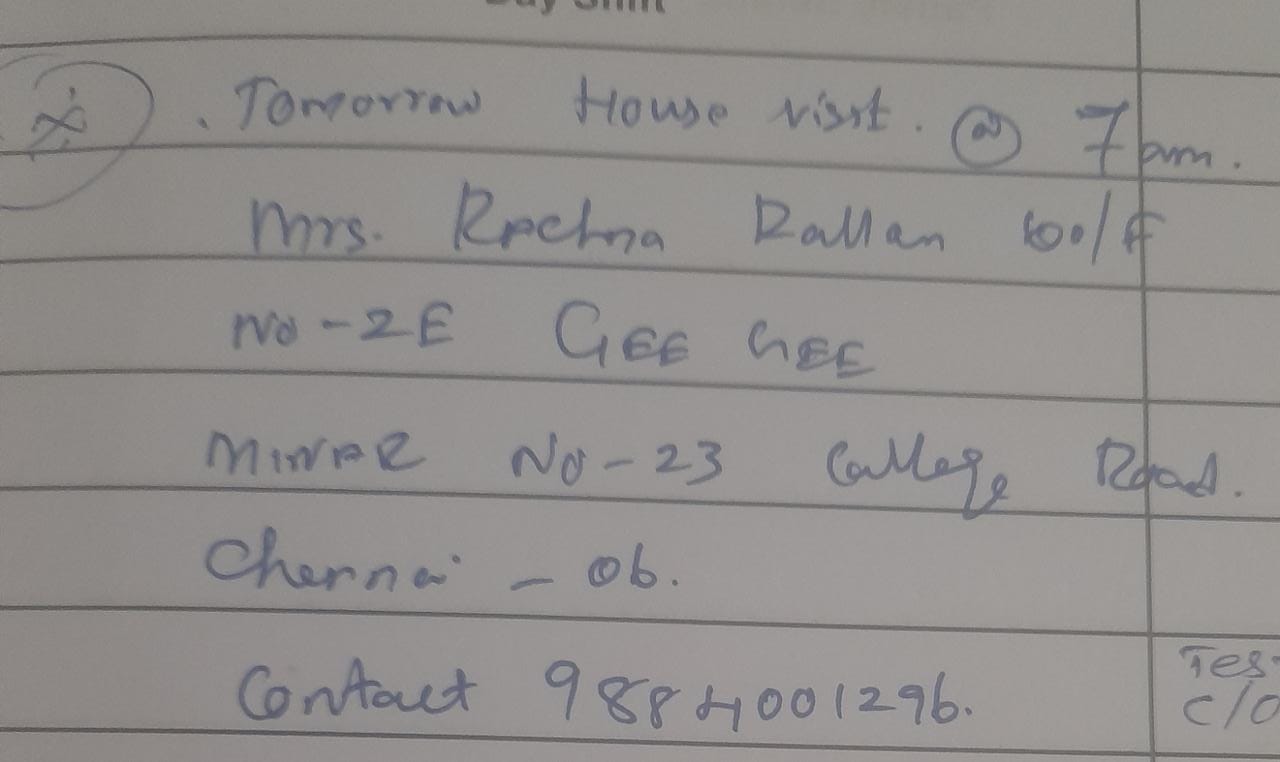 Day Shift
. Tomorrow House visit. @ 7am.
Mrs. Rachna Rallan 60/F
No-2E GEE GEE
MINAR No-23 College Road.
Chennai - 06.
Contact 9884001296.
Tes
c/o